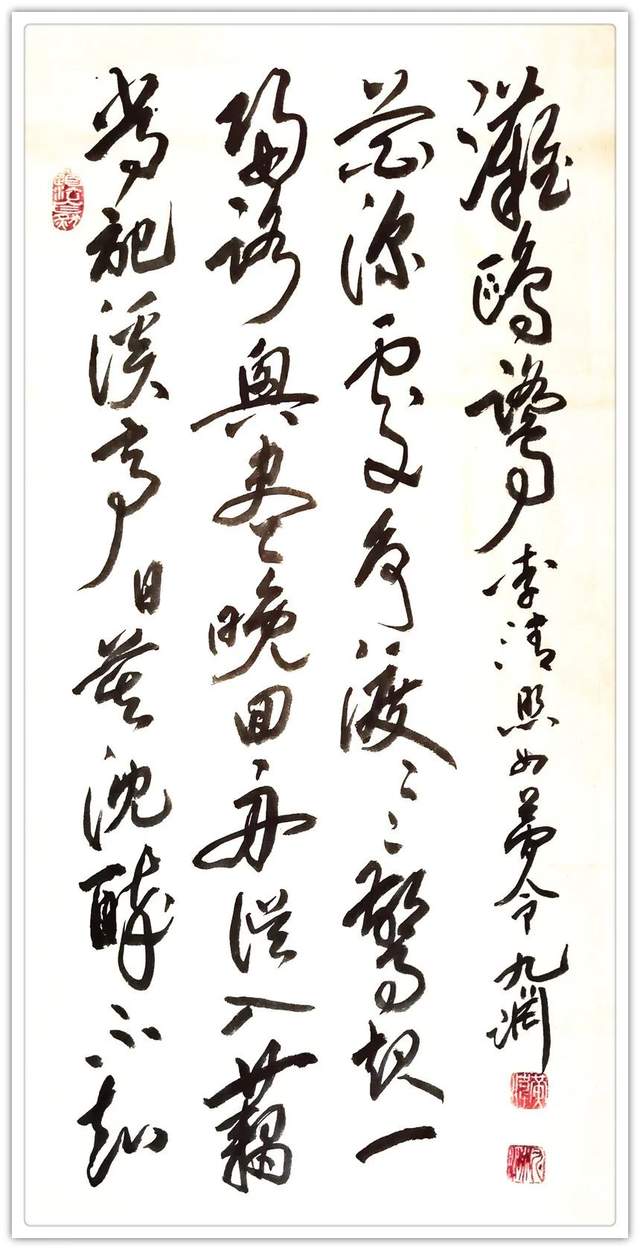 常記溪亭日暮沈醉不知
歸路興盡晚回舟誤入藕
花深處爭渡〻〻驚起一
灘鷗鷺 李清照如夢令 九淵